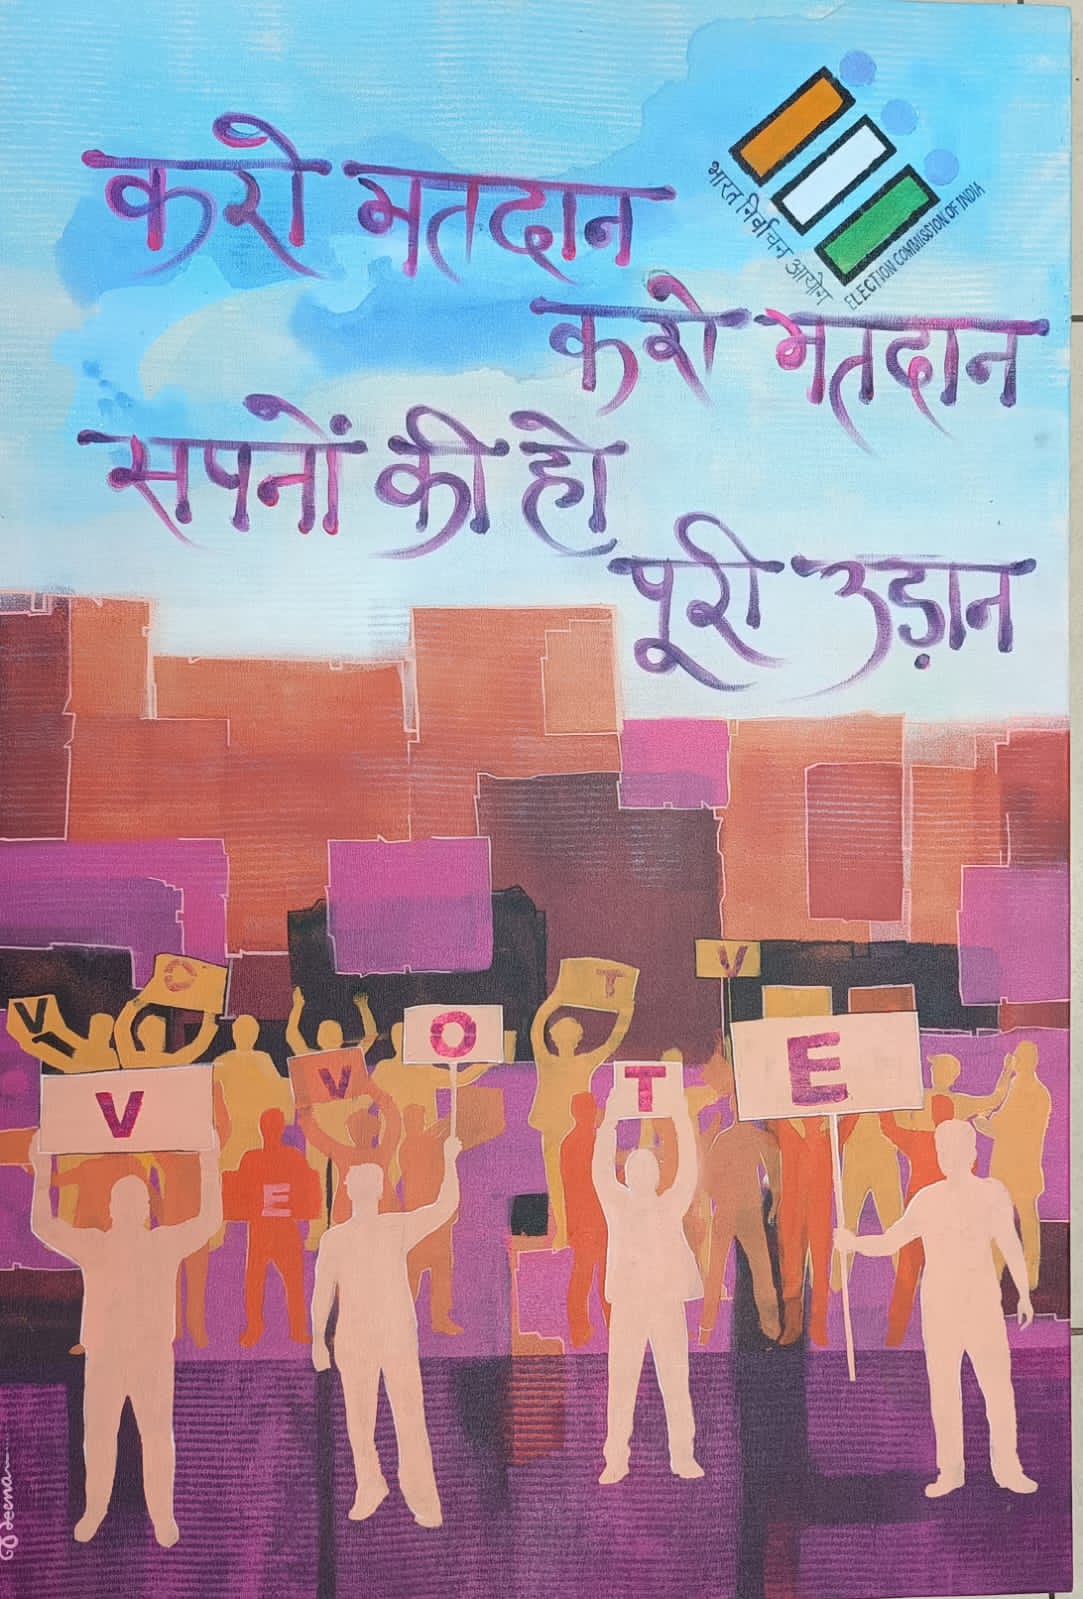 करो मतदान
भारत निर्वाचन आयोग
ELECTION COMMISSION OF INDIA
करो मतदान
सपनों की हो
पूरी उड़ान
V O T V
V O T E
V
E